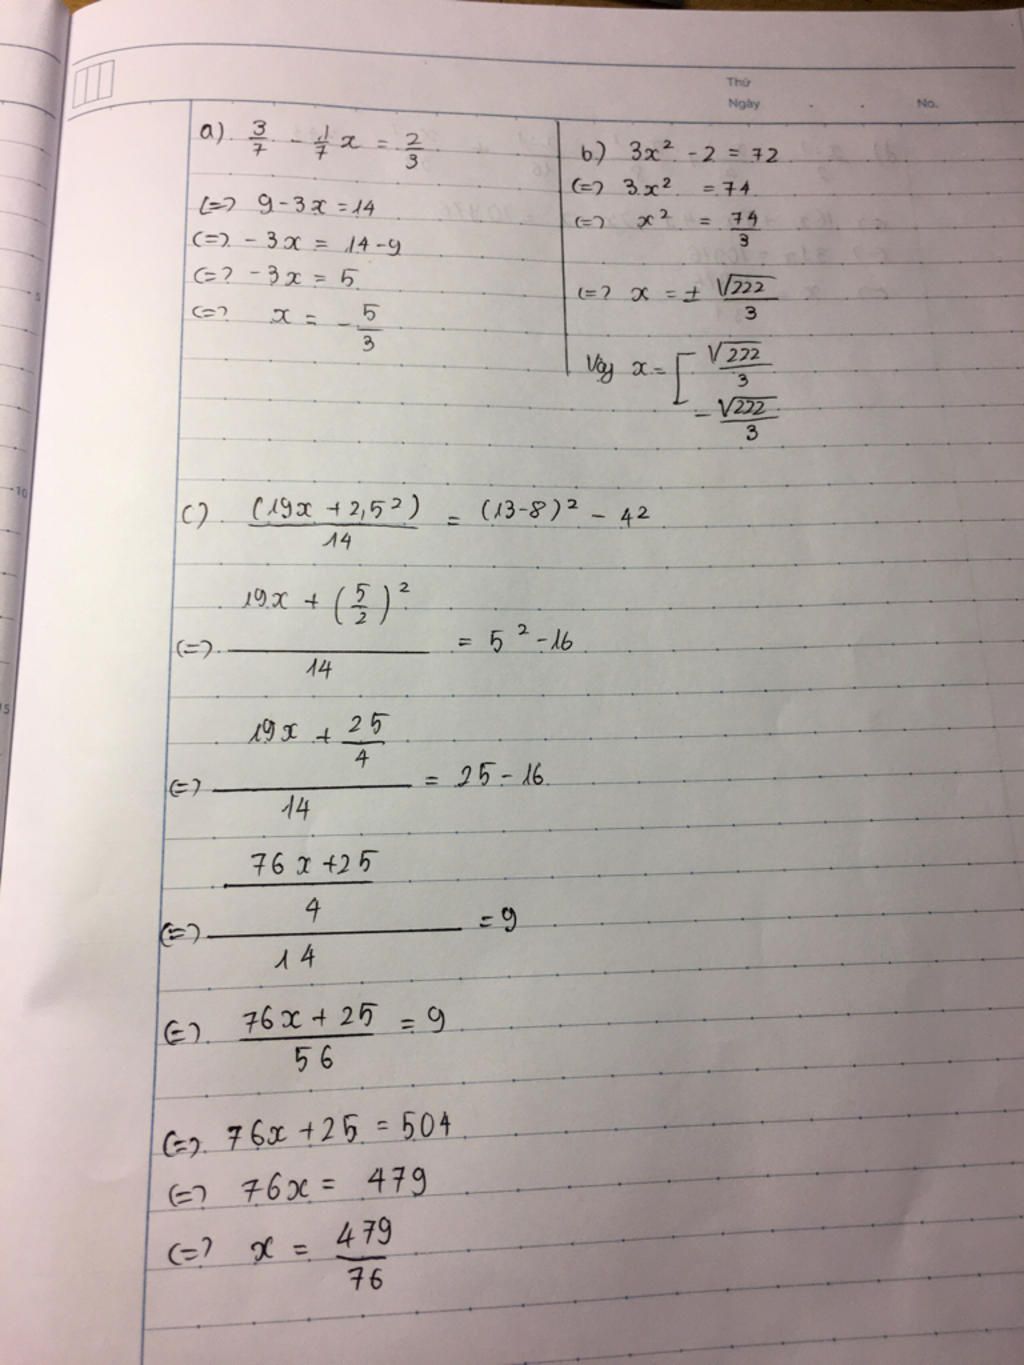 Thứ
Ngày . . No.
a) 3/7 - 1/7 x = 2/3
(=) 9 - 3x = 14
(=) - 3x = 14 - 9
(=) - 3x = 5
(=) x = - 5/3
b) 3x² - 2 = 72
(=) 3x² = 74
(=) x² = 74/3
(=) x = ± √222/3
Vậy x = [ √222/3
- √222/3
c) (19x + 2,5²)/14 = (13-8)² - 4²
(=) (19x + (5/2)²)/14 = 5² - 16
(=) (19x + 25/4)/14 = 25 - 16
(=) ((76x + 25)/4)/14 = 9
(=) (76x + 25)/56 = 9
(=) 76x + 25 = 504
(=) 76x = 479
(=) x = 479/76
5
10
15